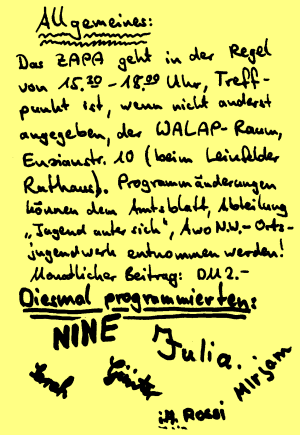 Allgemeines:
Das ZAPA geht in der Regel
von 15.30 - 18.00 Uhr, Treff-
punkt ist, wenn nicht anderst
angegeben, der WALAP-Raum,
Enzianstr. 10 (beim Leinfelder
Rathaus). Programmänderungen
können dem Amtsblatt, Abteilung
"Jugend unter sich", Awo N.W.-Orts-
jugendwerk entnommen werden!
Monatlicher Beitrag: DM 2.-
Diesmal programmierten:
NINE Julia.
Sarah Günter Mirjam
i.A. Rossi